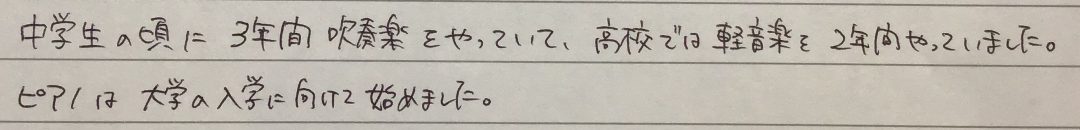 中学生の頃に3年間吹奏楽をやっていて、高校では軽音楽を2年間やっていました。
ピアノは大学の入学に向けて始めました。